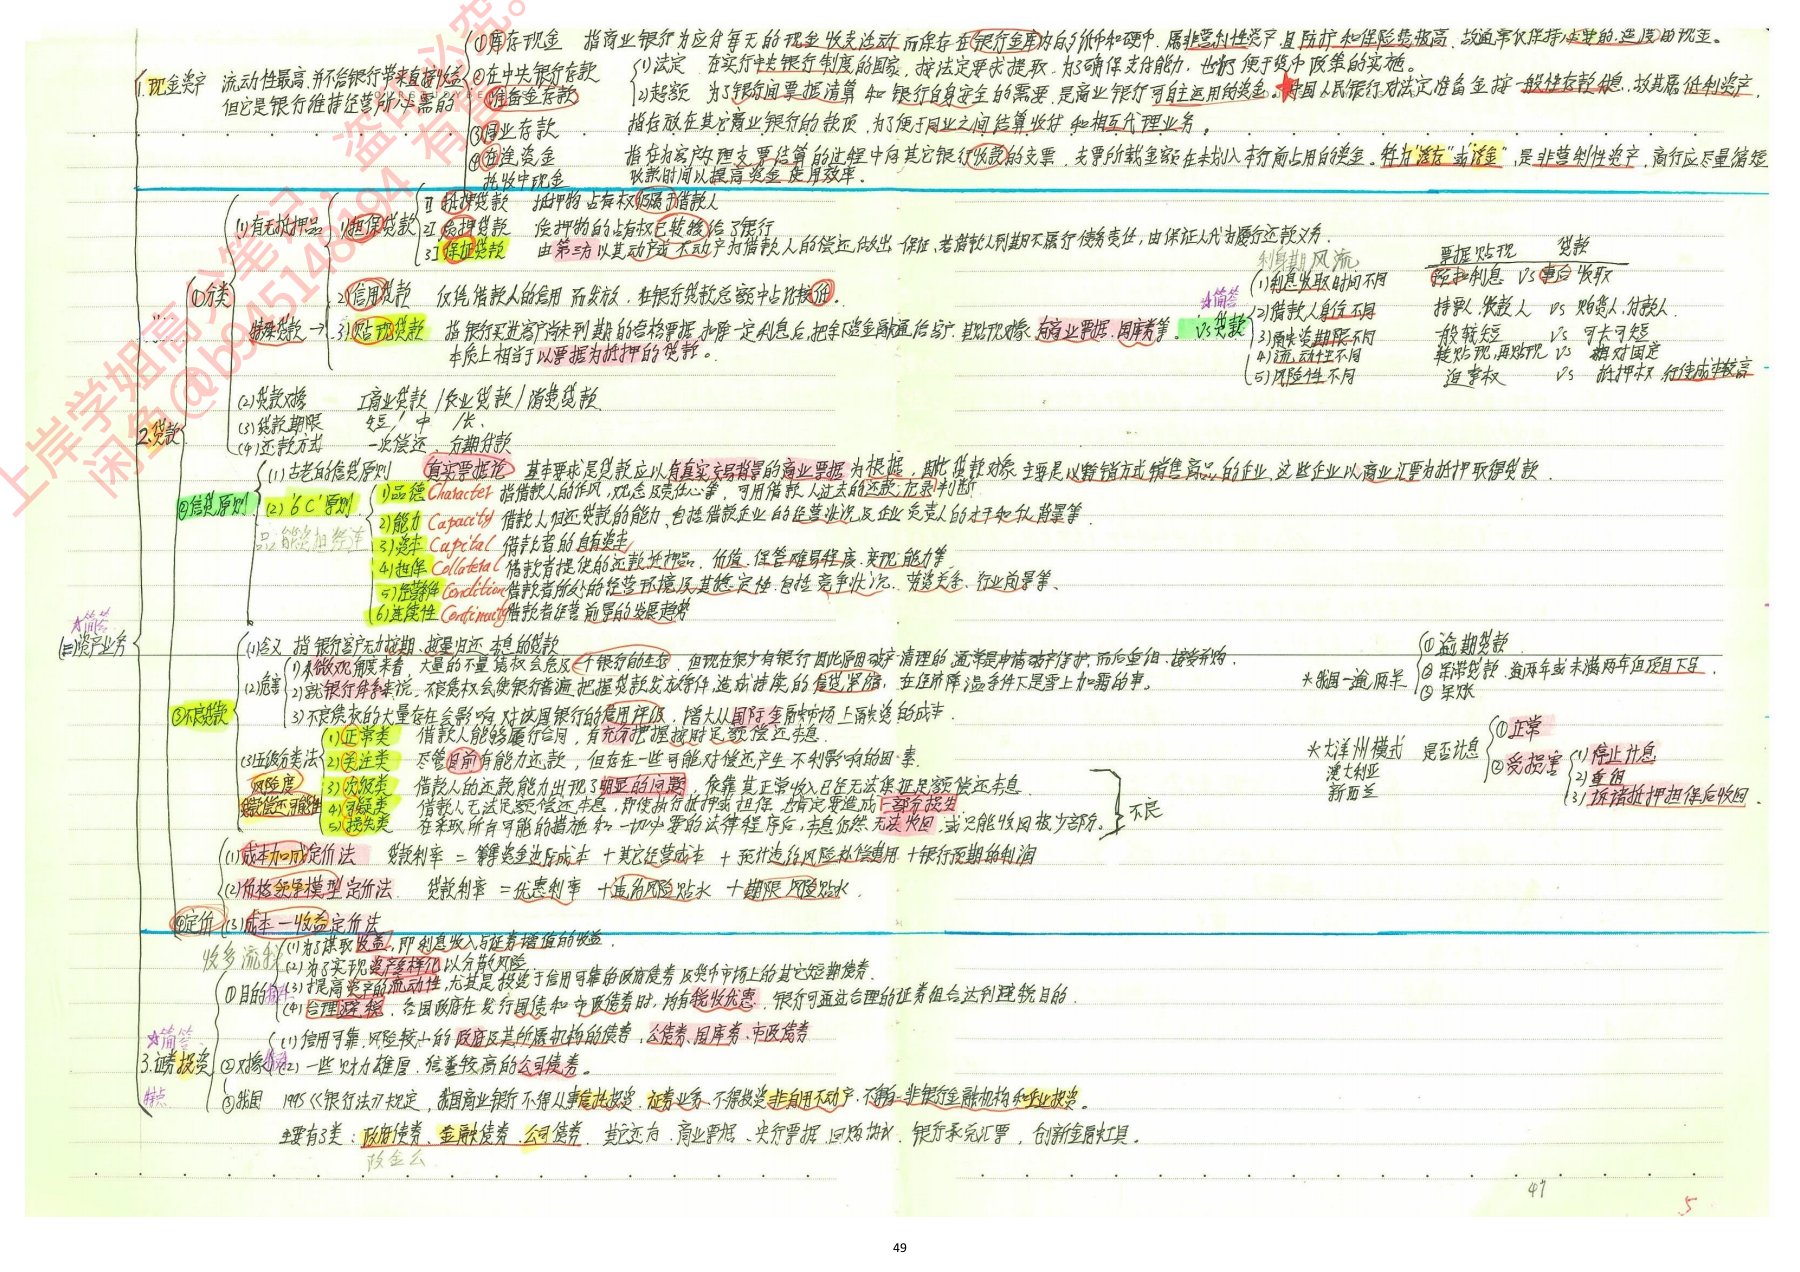 ①库存现金 指商业银行为应付每天的现金收支活动而保存在银行金库内的纸币和硬币。属非营利性资产且防护和保险费极高,故通常仅保持必要的、适度的现金。
1.现金资产 流动性最高,并不给银行带来直接收益
但它是银行维持经营所必需的
②在中央银行存款
准备金存款
1)法定 在实行中央银行制度的国家,按法定要求提取,为了确保支付能力,也便于货币政策的实施。
2)超额 为了银行间票据清算和银行自身安全的需要,是商业银行可自主运用的资金。★中国人民银行对法定准备金按一般性存款付息,故其属低利资产.
③同业存款 指存放在其它商业银行的款项,为了便于同业之间结算收付和相互代理业务。
④在途资金 指在为客户办理支票结算的过程中向其它银行收款的支票,支票所载金额在未划入本行前占用的资金。称为“浮存”或“浮金”,是非营利性资产,商行应尽量缩短
托收中现金 收款时间以提高资金使用效率.
(三)资产业务 ☆简答
2.贷款
①分类
(1)有无抵押品
1)担保贷款
1]抵押贷款 抵押物占有权仍属于借款人
2]质押贷款 质押物的占有权已转移给了银行
3]保证贷款 由第三方以其动产或不动产为借款人的偿还作出一保证,若借款人到期不履行债务责任,由保证人代为履行还款义务.
2)信用贷款 仅凭借款人的信用而发放,在银行贷款总额中占比较低。
特殊贷款→3)贴现贷款 指银行买进客户尚未到期的合格票据,扣除一定利息后,把余下资金融通给客户,其贴现对象为商业票据、国库券等。
本质上相当于以票据为抵押的贷款。
☆简答
VS贷款
利身期风流 票据贴现 贷款
(1)利息收取时间不同 预扣利息 VS 事后收取
(2)借款人身份不同 持票人.收款人 VS 购货人.付款人.
(3)融资期限不同 一般较短 VS 可长可短
(4)流动性不同 转贴现,再贴现 VS 相对固定
(5)风险性不同 追索权 VS 抵押权 行使成本较高
(2)贷款对象 工商业贷款/农业贷款/消费贷款
(3)贷款期限 短/中/长.
(4)还款方式 一次偿还 分期付款
②信贷原则
(1)古老的信贷原则 真实票据论 基本要求是贷款应以有真实交易背景的商业票据为根据,因此贷款对象主要是以赊销方式销售商品的企业,这些企业以商业汇票为抵押取得贷款.
(2)“6C”原则
品能资担经连
1)品德Character 指借款人的作风,观念及责任心等,可用借款人过去的还款记录判断
2)能力Capacity 借款人归还贷款的能力,包括借款企业的经营状况及企业负责人的才干和个人背景等.
3)资本Capital 借款者的自有资本
4)担保Collateral 借款者提供的还款抵押品,价值、保管难易程度、变现能力等
5)经营条件Condition 借款者所处的经营环境及其稳定性.包括竞争状况、劳资关系、行业前景等、
(6)连续性Continuity 借款者经营前景的发展趋势
③不良贷款
(1)含义 指银行客户无力按期、按量归还本息的贷款
(2)危害
1)从微观角度来看 大量的不良债权会危及一个银行的生存,但现在很少有银行因此原因破产清理的,通常是申请破产保护,而后重组、接管并购.
2)就银行体系来说,不良债权会使银行普遍把握贷款发放条件,造成持续的信贷紧缩,在经济降温条件下是雪上加霜的事。
3)不良债权的大量存在会影响对该国银行的信用评级,增大从国际金融市场上融资的成本.
(3)五级分类法
风险度
借款偿还可能性
1)正常类 借款人能够履行合同,有充分把握按时足额偿还本息.
2)关注类 尽管目前有能力还款,但存在一些可能对偿还产生不利影响的因素.
3)次级类 借款人的还款能力出现了明显的问题,依靠其正常收入已经无法保证足额偿还本息
4)可疑类 借款人无法足额偿还本息,即使执行抵押或担保,也肯定要造成一部分损失
5)损失类 在采取所有可能的措施和一切必要的法律程序后,本息仍然无法收回,或只能收回极少部分。
不良
*我国一逾两呆
①逾期贷款
②呆滞贷款 逾两年或未满两年但项目下马
③呆账
*大洋州模式 是否计息
澳大利亚
新西兰
①正常
②受损害
(1)停止计息
(2)重组
(3)诉诸抵押担保后收回.
④定价
(1)成本加成定价法 贷款利率=筹集资金边际成本+其它经营成本+预计违约风险补偿费用+银行预期的利润
(2)价格领导模型定价法. 贷款利率=优惠利率+违约风险贴水+期限风险贴水.
(3)成本—收益定价法
3.证券投资 ☆简答
特点
收多流税
①目的
(1)为了谋取收益,即利息收入与证券增值的收益.
(2)为了实现资产多样化以分散风险
(3)提高资产的流动性,尤其是投资于信用可靠的政府债券及货币市场上的其它短期债券.
(4)合理避税,各国政府在发行国债和市政债券时,均有税收优惠.银行可通过合理的证券组合达到避税目的.
②对象
(1)信用可靠.风险较小的政府及其所属机构的债券,公债券、国库券、市政债券
(2)一些财力雄厚.信誉较高的公司债券。
③我国 1995《银行法》规定,我国商业银行不得从事信托投资.证券业务、不得投资非自用不动产,不得向非银行金融机构和企业投资。
主要有3类:政府债券、金融债券、公司债券. 其它还有.商业票据、央行票据.回购协议.银行承兑汇票,创新金融工具。
政金公
47
5
上岸学姐高分笔记,盗印必究。
闲鱼@b945148194
49